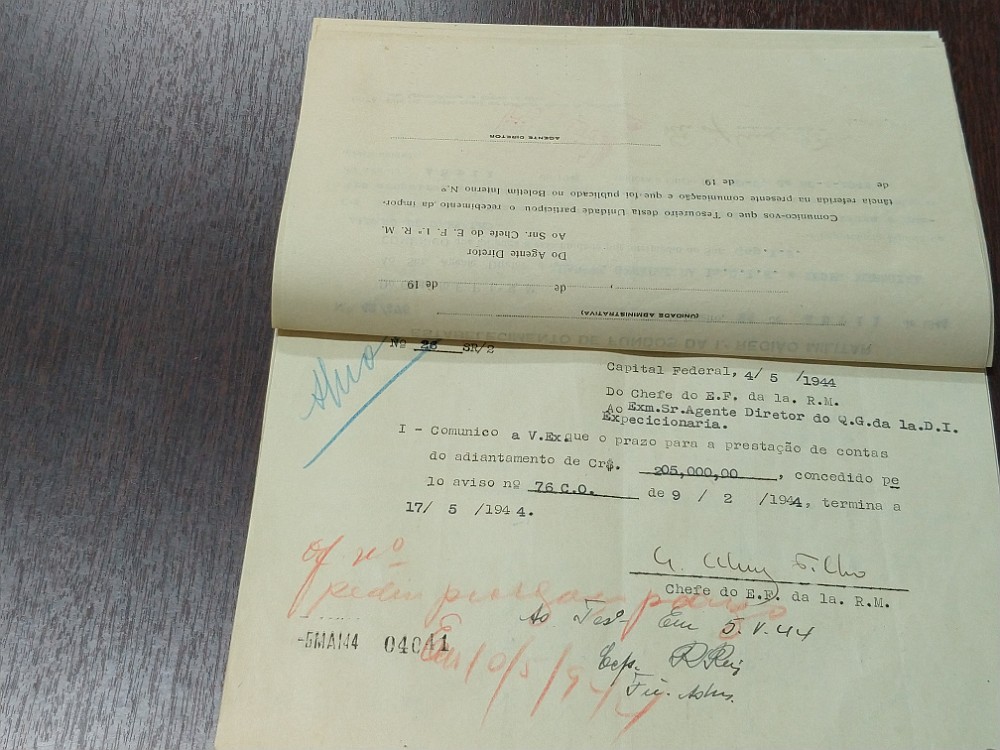 AGENTE DIRETOR
de de 19
tância referida na presente comunicação e que foi publicado no Boletim Interno N.º
Comunico-vos que o Tesoureiro desta Unidade participou o recebimento da impor-
Ao Snr. Chefe do E. F. 1.ª R. M.
Do Agente Diretor
, de de 19
(UNIDADE ADMINISTRATIVA)
ESTABELECIMENTO DE FUNDOS DA 1.ª REGIÃO MILITAR
Nº 26 SR/2
Capital Federal, 4/ 5 /1944
Do Chefe do E.F. da 1a. R.M.
Ao Exm.Sr.Agente Diretor do Q.G.da 1a.D.I.
Expecicionaria.
I - Comunico a V.Ex.que o prazo para a prestação de contas
do adiantamento de Cr$. 205,000,00 , concedido pe
lo aviso nº 76 C.O. de 9 / 2 /1944, termina a
17/ 5 /1944.
Of. nº
Filho
Chefe do E.F. da 1a. R.M.
pedir
Ao Tesº Em 5.V.44
-5MAI44 04041
Em 10/5/944
Cap. R. Reis